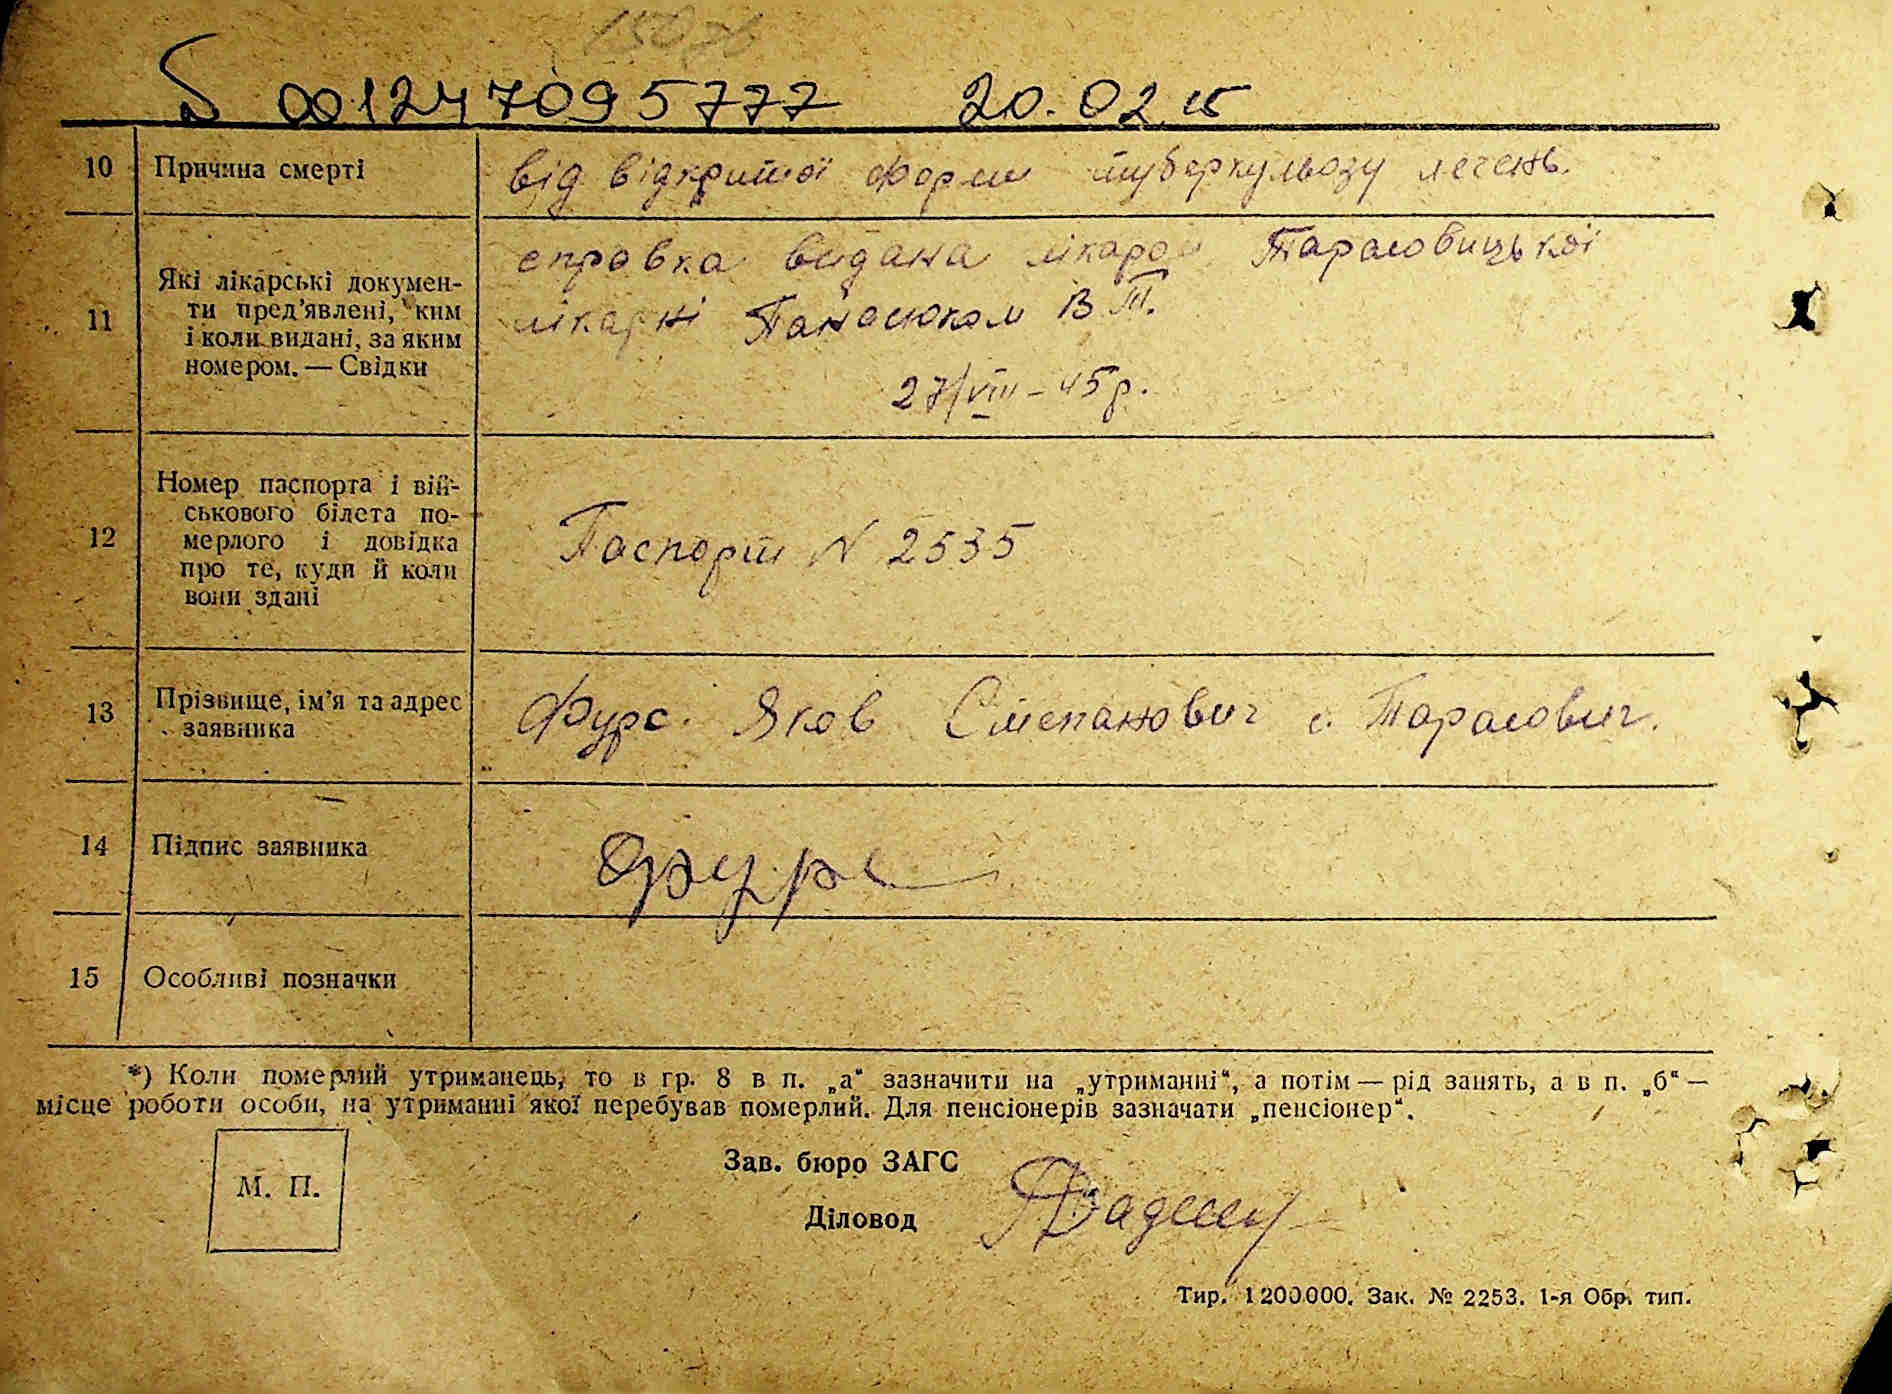 00124709577 20.02.15
10 Причина смерті від відкритої форми туберкульозу легень.
11 Які лікарські докумен-
ти пред'явлені, ким
і коли видані, за яким
номером. — Свідки
справка видана лікаром Тарасовицької
лікарні Панасюком В Т.
27/VIII – 45 р.
12 Номер паспорта і вій-
ськового білета по-
мерлого і довідка
про те, куди й коли
вони здані
Паспорт N 2535
13 Прізвище, ім'я та адрес
заявника
Фурс. Яков Степанович с. Тарасович.
14 Підпис заявника Фурс
15 Особливі позначки
*) Коли померлий утриманець, то в гр. 8 в п. „а“ зазначити на „утриманні“, а потім — рід занять, а в п. „б“ —
місце роботи особи, на утриманні якої перебував померлий. Для пенсіонерів зазначати „пенсіонер“.
М. П.
Зав. бюро ЗАГС
Діловод
Тир. 1200000. Зак. № 2253. 1-я Обр. тип.